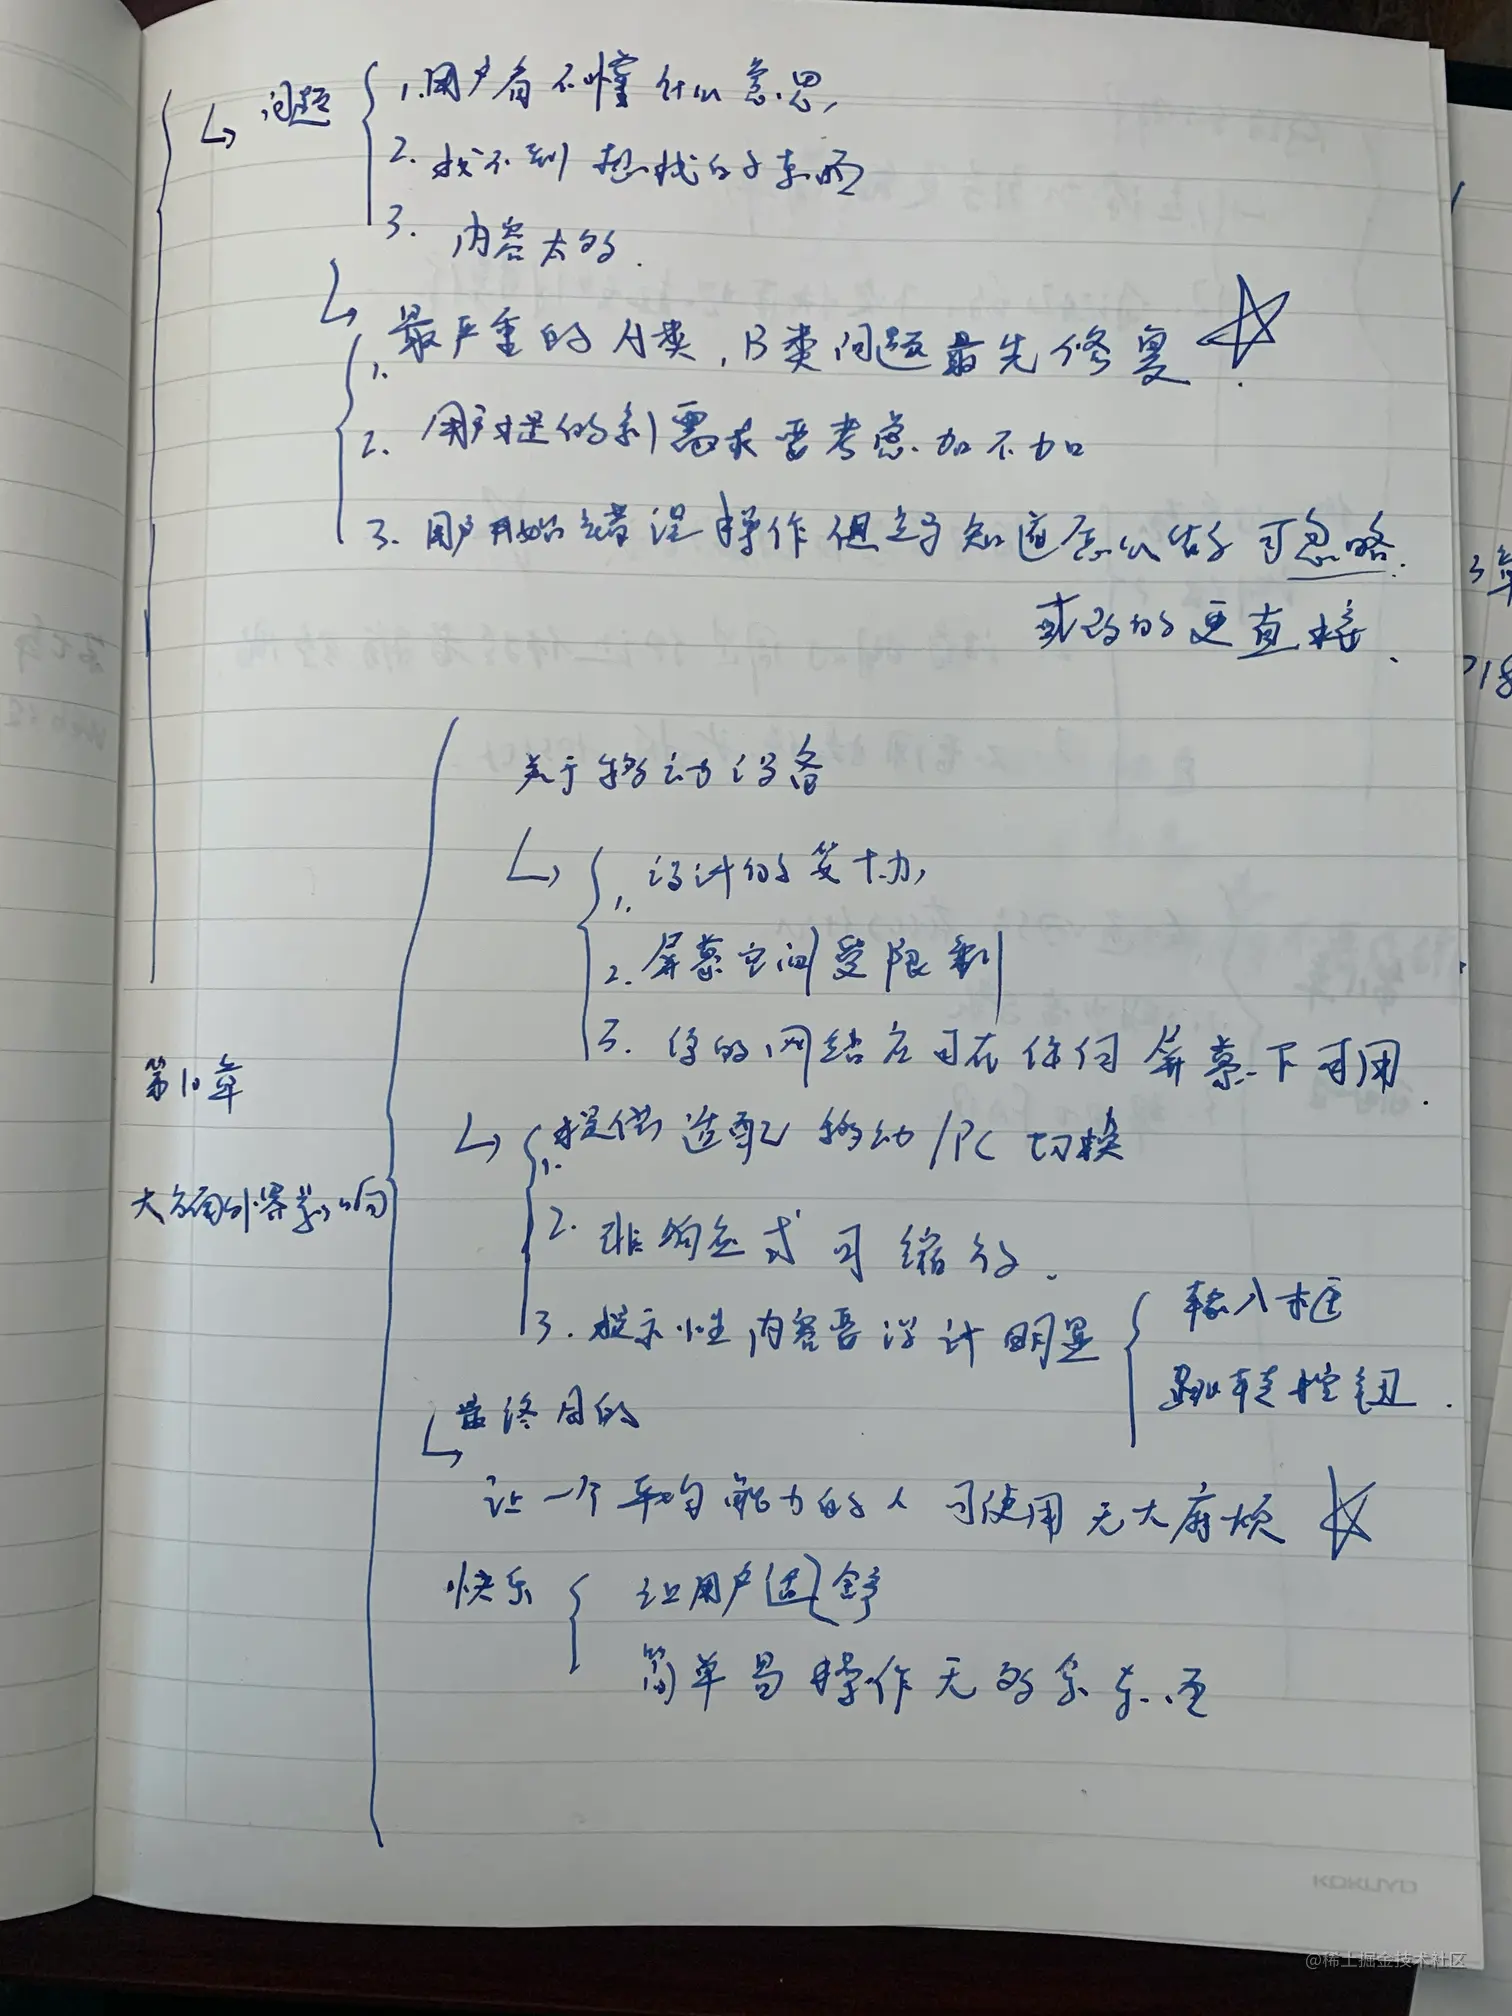 问题
1.用户看不懂什么意思,
2. 找不到想找的东西
3. 内容太多.
1. 最严重的A类,B类问题最先修复.
2. 用户提的新需求要考虑加不加
3. 用户开始错误操作但立马知道怎么做的可忽略.
或改的更直接.
关于移动设备
1. 设计的
2. 屏幕空间受限制
3. 你的网络应可在任何屏幕下可用.
第10章
1. 提供适配移动/PC切换
大方面
2. 非响应式可缩放.
3. 提示性内容要设计明显
输入框
跳转按钮.
最终目的
让一个平均能力的人可使用无大麻烦
快乐
让用户适
简单易操作无多余东西
3章
KOKUYO
@稀土掘金技术社区